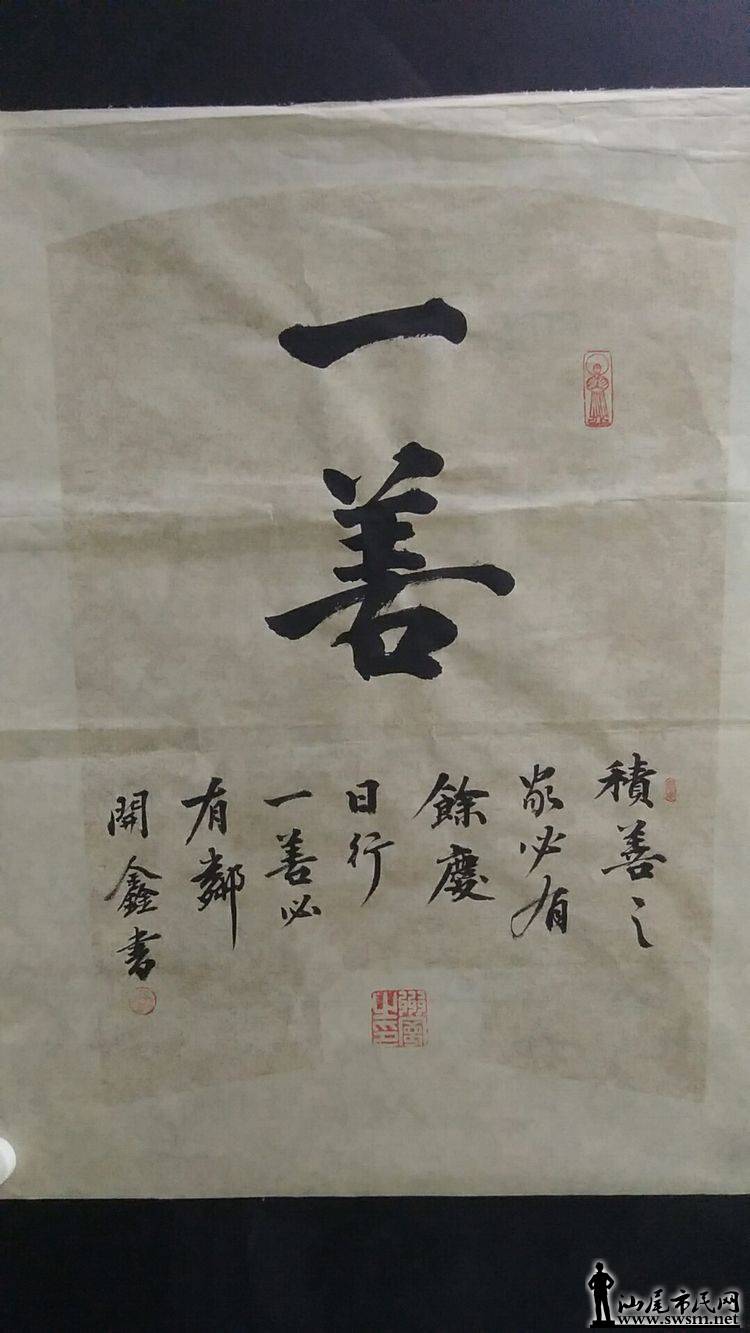 一善
積善之
家必有
餘慶
日行
一善必
有鄰
開鑫書
汕尾市民网
www.swsm.net